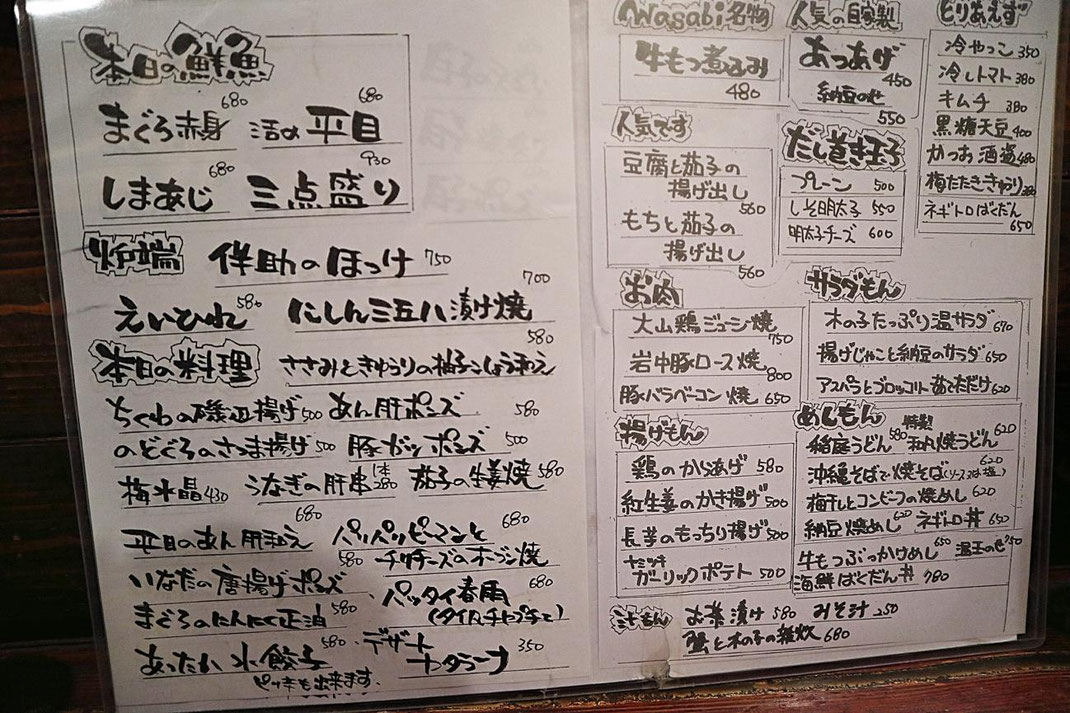 本日の鮮魚
まぐろ赤身 680 活〆平目 680
しまあじ 680 三点盛り 930
炉端 伴助のほっけ 750
えいひれ 580 にしん三五八漬け焼 700
本日の料理 ささみときゅうりの柚子こしょう和え 580
ちくわの磯辺揚げ 500 あん肝ポンズ 580
のどぐろのさつま揚げ 500 豚ガツポンズ 500
梅水晶 430 うなぎの肝串 1本 280 茄子の生姜焼 580
平目のあん肝和え 680 パリパリピーマンと
チリチーズのオーブン焼 680
いなだの唐揚げポンズ 580
パッタイ春雨 680
(タイ風チャプチェ)
まぐろのにんにく正油 580
あったか水餃子 580
ピリ辛も出来ます。
デザート
カタラーナ 350
Wasabi名物
牛もつ煮込み
480
人気の自家製
あつあげ
450
納豆のせ
550
とりあえず
冷やっこ 350
冷しトマト 380
キムチ 380
黒糖天豆 400
かつお酒盗 480
梅たたききゅうり 380
ネギトロばくだん
650
人気です
豆腐と茄子の
揚げ出し
560
もちと茄子の
揚げ出し
560
だし巻き玉子
プレーン 500
しそ明太子 550
明太子チーズ 600
お肉
大山鶏ジューシ焼
750
岩中豚ロース焼
800
豚バラベーコン焼 650
サラダもん
木の子たっぷり温サラダ 670
揚げじゃこと納豆のサラダ 650
アスパラとブロッコリー茹でただけ 620
揚げもん
鶏のからあげ 580
紅生姜のかき揚げ 500
長芋のもっちり揚げ 500
ヤミツキ
ガーリックポテト 500
めしもん
稲庭うどん 580 特製 和風焼うどん 620
沖縄そばで焼そば(ソース又は塩) 620
梅干しとコンビーフの焼めし 620
納豆焼めし 620 ネギトロ丼 650
牛もつぶっかけめし 650 温玉のせ
海鮮ばくだん丼 780
汁もん お茶漬け 580 みそ汁 250
蟹と木の子の雑炊 680